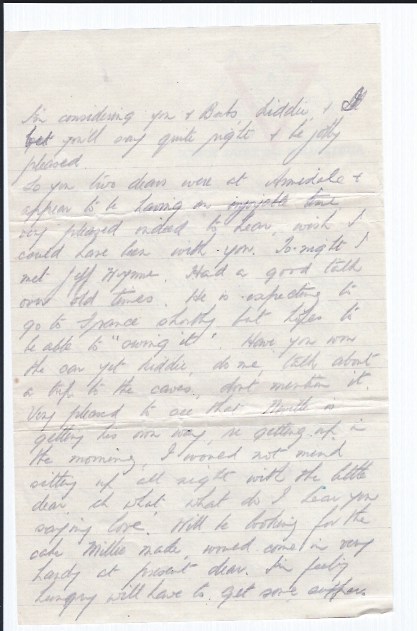 I'm considering you & Bubs, Liddie, & I
bet you'll say quite right & be jolly
pleased.
So you two dears were at &
appear to be having an enjoyable time
very pleased indeed to hear, wish I
could have been with you. To-night I
met Jeff Wynne. Had a good talk
over old times. He is expecting to
go to France shortly but hopes to
be able to "swing it". Have you won
the car yet Liddie, do me, talk about
a trip to the caves, don't mention it.
Very pleased to see that is
getting his own way, re getting up in
the morning, I would not mind
sitting up all night with the little
dear eh what, what do I hear you
saying love. Will be looking for the
cake Millie made, would come in very
handy at present dear. I'm feeling
hungry will have to get some supper.